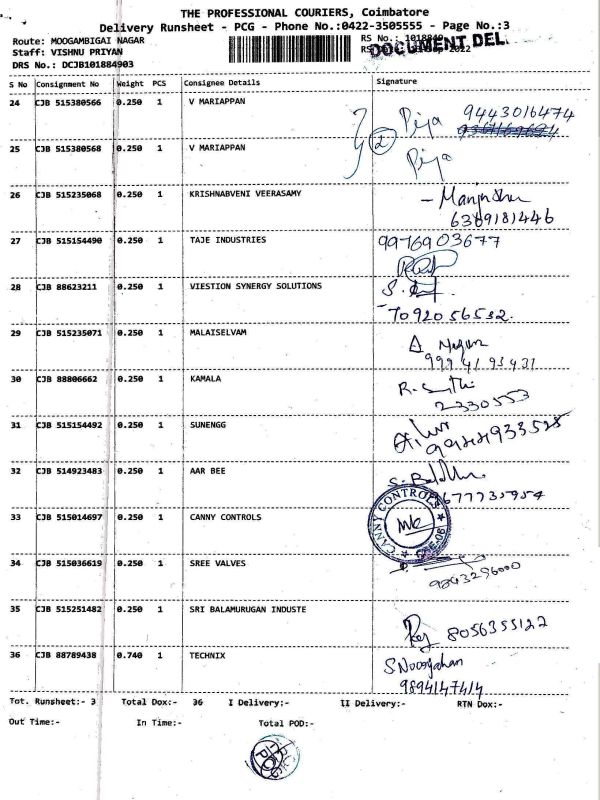 THE PROFESSIONAL COURIERS, Coimbatore
Delivery Runsheet - PCG - Phone No.:0422-3505555 - Page No.:3
Route: MOOGAMBIGAI NAGAR
Staff: VISHNU PRIYAN
DRS No.: DCJB101884903
DOCUMENT DEL.
S No Consignment No Weight PCS Consignee Details Signature
24 CJB 515380566 0.250 1 V MARIAPPAN Priya 9443016474
2
25 CJB 515380568 0.250 1 V MARIAPPAN Priya
26 CJB 515235068 0.250 1 KRISHNABVENI VEERASAMY
6389181446
27 CJB 515154490 0.250 1 TAJE INDUSTRIES 9976903677
28 CJB 88623211 0.250 1 VIESTION SYNERGY SOLUTIONS
7092056532.
29 CJB 515235071 0.250 1 MALAISELVAM
30 CJB 88806662 0.250 1 KAMALA
2330553
31 CJB 515154492 0.250 1 SUNENGG
32 CJB 514923483 0.250 1 AAR BEE
9677735954
33 CJB 515014697 0.250 1 CANNY CONTROLS
CANNY CONTROLS
34 CJB 515036619 0.250 1 SREE VALVES
9843256000
35 CJB 515251482 0.250 1 SRI BALAMURUGAN INDUSTE
8056355122
36 CJB 88789438 0.740 1 TECHNIX S Noorjahan
9894147414
Tot. Runsheet:- 3 Total Dox:- 36 I Delivery:- II Delivery:- RTN Dox:-
Out Time:- In Time:- Total POD:-